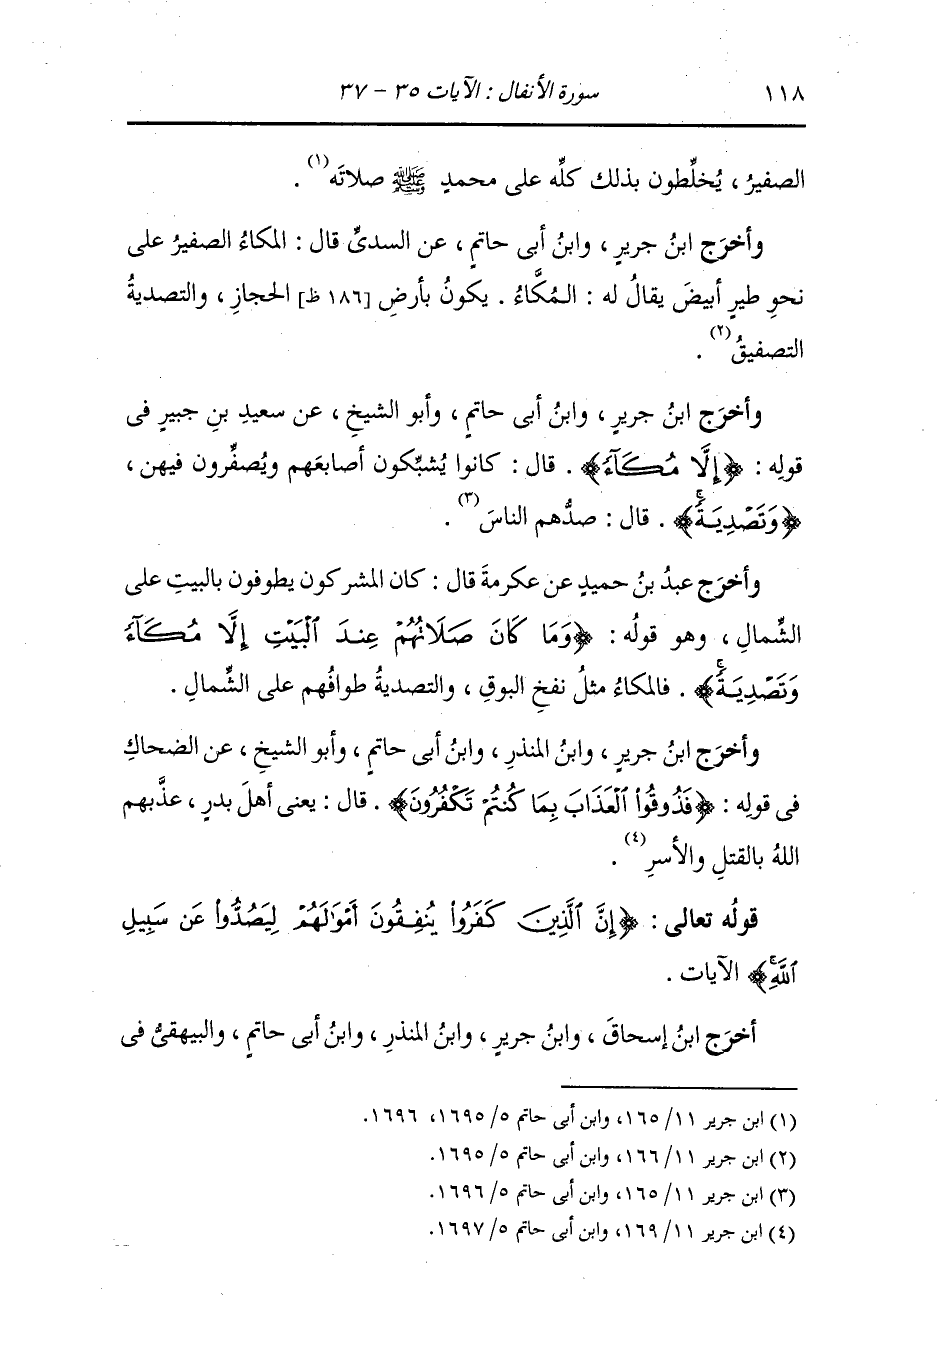 ١١٨ سورة الأنفال : الآيات ٣٥ - ٣٧
الصفيرُ ، يُخلِّطون بذلك كلِّه على محمدٍ ﷺ صلاتَه(١) .
وأخرَج ابنُ جريرٍ ، وابنُ أبى حاتمٍ ، عن السدىِّ قال : المكاءُ الصفيرُ على
نحوِ طيرٍ أبيضَ يقالُ له : المُكَّاءُ . يكونُ بأرضِ [١٨٦ظ] الحجازِ ، والتصديةُ
التصفيقُ(٢) .
وأخرَج ابنُ جريرٍ ، وابنُ أبى حاتمٍ ، وأبو الشيخِ ، عن سعيدِ بنِ جبيرٍ فى
قولِه : ﴿إِلَّا مُكَآءً﴾ . قال : كانوا يُشبِّكون أصابعَهم ويُصفِّرون فيهن ،
﴿وَتَصْدِيَةً﴾ . قال : صدُّهم الناسَ(٣) .
وأخرَج عبدُ بنُ حميدٍ عن عكرمةَ قال : كان المشركون يطوفون بالبيتِ على
الشِّمالِ ، وهو قولُه : ﴿وَمَا كَانَ صَلَاتُهُمْ عِندَ ٱلْبَيْتِ إِلَّا مُكَآءً
وَتَصْدِيَةً﴾ . فالمكاءُ مثلُ نفخِ البوقِ ، والتصديةُ طوافُهم على الشِّمالِ .
وأخرَج ابنُ جريرٍ ، وابنُ المنذرِ ، وابنُ أبى حاتمٍ ، وأبو الشيخِ ، عن الضحاكِ
فى قولِه : ﴿فَذُوقُوا۟ ٱلْعَذَابَ بِمَا كُنتُمْ تَكْفُرُونَ﴾ . قال : يعنى أهلَ بدرٍ ، عذَّبهم
اللهُ بالقتلِ والأسرِ(٤) .
قولُه تعالى : ﴿إِنَّ ٱلَّذِينَ كَفَرُوا۟ يُنفِقُونَ أَمْوَٰلَهُمْ لِيَصُدُّوا۟ عَن سَبِيلِ
ٱللَّهِ﴾ الآيات .
أخرَج ابنُ إسحاقَ ، وابنُ جريرٍ ، وابنُ المنذرِ ، وابنُ أبى حاتمٍ ، والبيهقىُّ فى
(١) ابن جرير ١١/ ١٦٥، وابن أبى حاتم ٥/ ١٦٩٥، ١٦٩٦.
(٢) ابن جرير ١١/ ١٦٦، وابن أبى حاتم ٥/ ١٦٩٥.
(٣) ابن جرير ١١/ ١٦٥، وابن أبى حاتم ٥/ ١٦٩٦.
(٤) ابن جرير ١١/ ١٦٩، وابن أبى حاتم ٥/ ١٦٩٧.